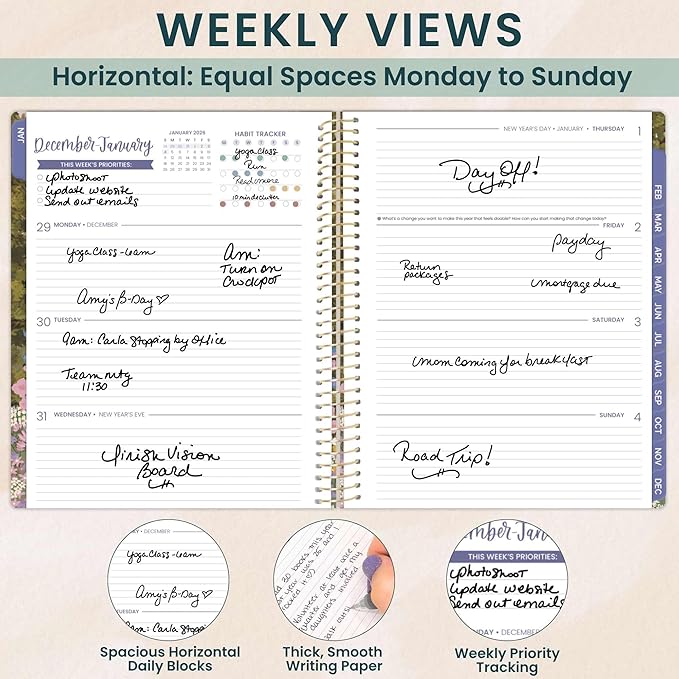 WEEKLY VIEWS
Horizontal: Equal Spaces Monday to Sunday
JAN
December-January
THIS WEEK'S PRIORITIES:
photoshoot
update website
Send out emails
JANUARY 2026
HABIT TRACKER
M T W T F S S
Yoga Class
Run
Read more
10 min declutter
29 MONDAY • DECEMBER
Yoga Class - 6am
Am:
Turn on
Crockpot
Amy's B-Day ♡
30 TUESDAY
9am: Carla Stopping by Office
Team mtg
11:30
31 WEDNESDAY • NEW YEAR'S EVE
Finish Vision
Board
NEW YEAR'S DAY • JANUARY • THURSDAY 1
Day Off!
What's a change you want to make this year that feels doable? How can you start making that change today?
FRIDAY 2
payday
Return
packages
mortgage due
SATURDAY 3
mom coming for breakfast
SUNDAY 4
Road Trip!
FEB
MAR
APR
MAY
JUN
JUL
AUG
SEP
OCT
NOV
DEC
DAY • DECEMBER
Yoga Class - 6am
Amy's B-Day ♡
TUESDAY
am: Carla Stopp
Spacious Horizontal
Daily Blocks
30 books this year
Volunteer at least once a
quarter and get my
daughters involved
Thick, Smooth
Writing Paper
mber-Jan
THIS WEEK'S PRIORITIES:
photoshoot
update website
Send out emails
DAY • DECEMBER
Weekly Priority
Tracking